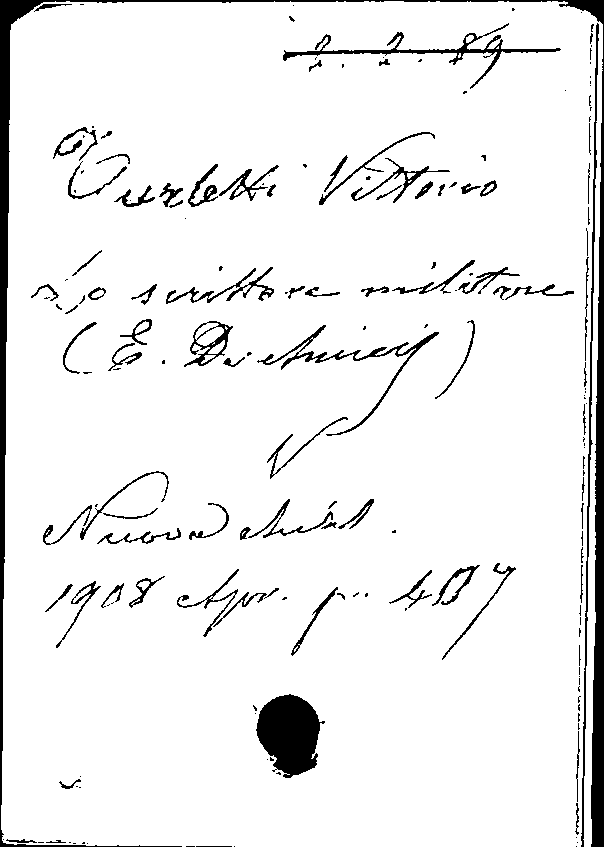 2. 2. 89
Turletti Vittorio
Lo scrittore militare
(E. De Amicis)
V
Nuova Antol.
1908 Apr. p.